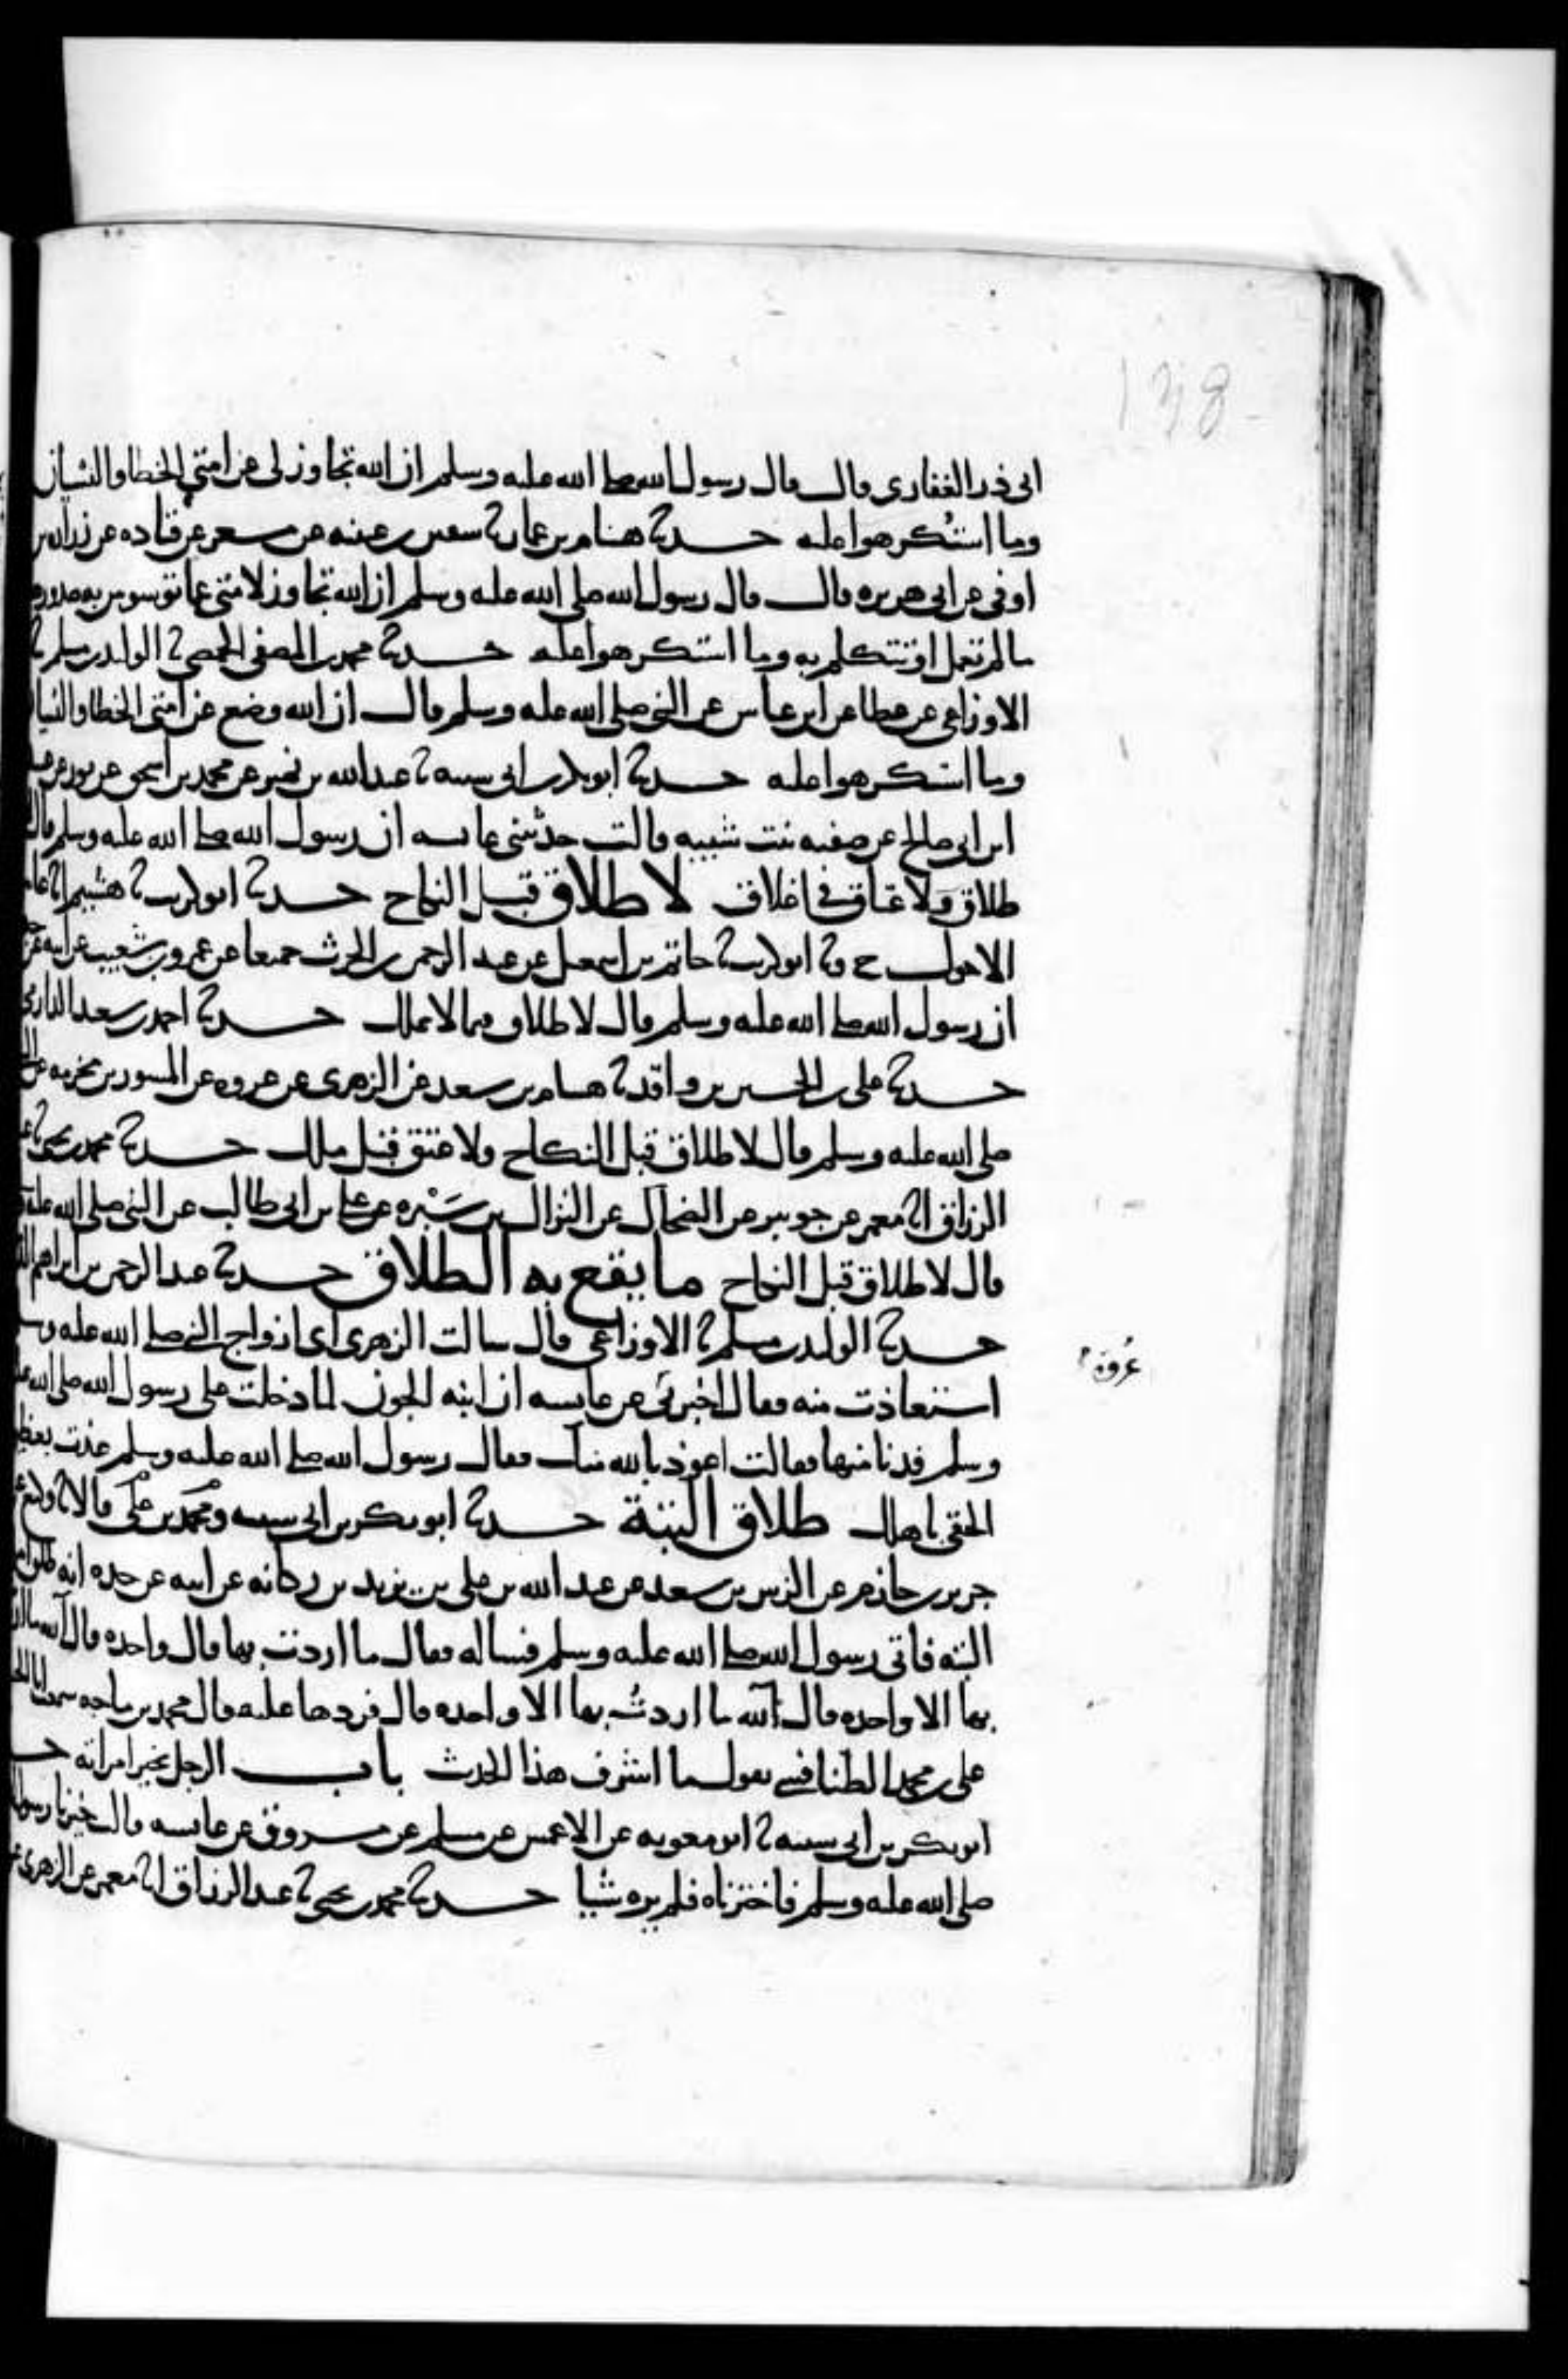 138
ابى ذر الغفارى قال قال رسول الله صلى الله عليه وسلم ان الله تجاوز لى عن امتى الخطا والنسيان
وما استكرهوا عليه حدثنا هشام بن عمار نا سفين بن عيينه عن مسعر عن قتاده عن زراره بن
اوفى عن ابى هريره قال قال رسول الله صلى الله عليه وسلم ان الله تجاوز لامتى عما توسوس به صدورها
ما لم تعمل او تتكلم به وما استكرهوا عليه حدثنا محمد بن المصفى الحمصى نا الوليد بن مسلم نا
الاوزاعى عن عطا عن ابن عباس عن النبى صلى الله عليه وسلم قال ان الله وضع عن امتى الخطا والنسيان
وما استكرهوا عليه حدثنا ابو بكر بن ابى شيبه نا عبد الله بن نمير عن محمد بن اسحق عن ثور عن عبيد
ابن ابى صالح عن صفيه بنت شيبه قالت حدثتنى عايشه ان رسول الله صلى الله عليه وسلم قال
طلاق ولا عتاق فى اغلاق لا طلاق قبل النكاح حدثنا ابو كريب نا هشيم انا عامر
الاحول ح ونا ابو كريب نا حاتم بن اسمعيل عن عبد الرحمن بن الحرث جميعا عن عمرو بن شعيب عن ابيه عن
ان رسول الله صلى الله عليه وسلم قال لا طلاق فيما لا يملك حدثنا احمد بن سعيد الدارمى
حدثنا على بن الحسين بن واقد نا هشام بن سعد عن الزهرى عن عروه عن المسور بن مخرمه عن
صلى الله عليه وسلم قال لا طلاق قبل النكاح ولا عتق قبل ملك حدثنا محمد بن يحيى نا
الرزاق انا معمر عن جويبر عن الضحاك عن النزال بن سَبْره عن على بن ابى طالب عن النبى صلى الله عليه
قال لا طلاق قبل النكاح ما يقع به الطلاق حدثنا عبد الرحمن بن ابراهيم
حدثنا الوليد بن مسلم نا الاوزاعى قال سالت الزهرى اى ازواج النبى صلى الله عليه وسلم
عُروة
استعاذت منه فقال اخبرنى عن عايشه ان ابنه الجون لما دخلت على رسول الله صلى الله عليه
وسلم فدنا منها فقالت اعوذ بالله منك فقال رسول الله صلى الله عليه وسلم عذت بعظيم
الحقى باهلك طلاق البتة حدثنا ابو بكر بن ابى شيبه ومحمد بن على قالا نا وكيع عن
جرير بن حازم عن الزبير بن سعد عن عبد الله بن على بن يزيد بن ركانه عن ابيه عن جده انه طلق امراته
البته فاتى رسول الله صلى الله عليه وسلم فساله فقال ما اردت بها قال واحده قال آلله ما اردت
بها الا واحده قال آلله ما اردتُ بها الا واحده قال فردها عليه قال محمد بن ماجه سمعت ابا الحسن
على بن محمد الطنافسى يقول ما اشرف هذا الحديث باب الرجل يخير امراته
ابو بكر بن ابى شيبه نا ابو معويه عن الاعمش عن مسلم عن مسروق عن عايشه قالت خيرنا رسول
صلى الله عليه وسلم فاخترناه فلم يره شيا حدثنا محمد بن يحيى نا عبد الرزاق انا معمر عن الزهرى عن